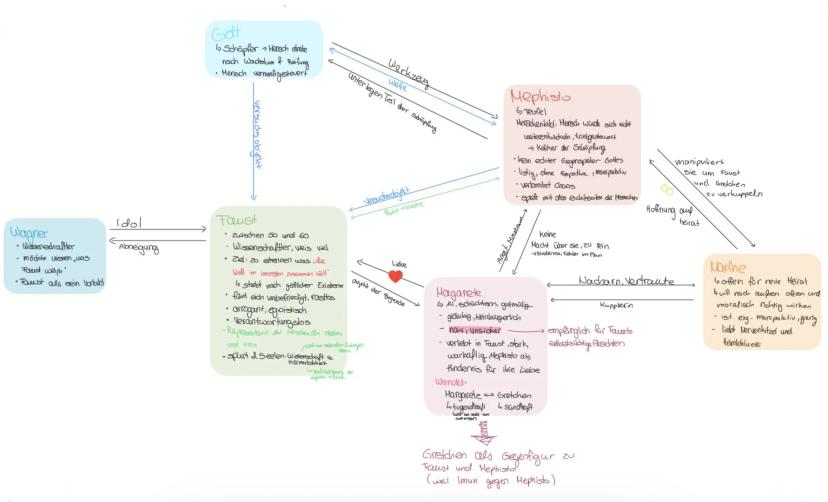 Gott
↳ Schöpfer → Mensch strebt
nach Wachstum & Prüfung
• Mensch vernunftgesteuert
Werkzeug
Wette
Unterlegen Teil der Schöpfung
Versuchsobjekt
Mephisto
↳ Teufel
Menschenbild: Mensch würde sich nicht
weiterentwickeln, triebgesteuert
→ Kritiker der Schöpfung
• kein echter Gegenspieler Gottes
• listig, ohne Empathie, manipulativ
• verbreitet Chaos
• spielt mit den der Menschen
manipuliert
sie um Faust
und Gretchen
zu verkuppeln
Hoffnung auf
heirat
Versuchsobjekt
Pakt
Wagner
• Wissenschaftler
• möchte wissen, was
Faust weiß
• Faust als sein Vorbild
Idol
Abneigung
Faust
• zwischen 50 und 60
• Wissenschaftler, weis viel
• Ziel: zu erkennen was "die
Welt im innersten zusammen hält"
↳ strebt nach göttlicher Existenz
• fühlt sich unbefriedigt, rastlos
• arrogant, egoistisch
• Verantwortungslos
• Repräsentant der Menschen
• spürt 2 Seelen: Wissenschaft vs.
Körperlichkeit
Liebe
objekt der Begierde
keine
Macht über sie, zu rein
Margarete
↳ schüchtern, gutmütig
• gläubig, kleinbürgerlich
• naiv, unsicher
→ empfänglich für Fausts
selbstsüchtige Absichten
• verliebt in Faust, stark,
warhaftig, Mephisto als
Hindernis für ihre Liebe
Wandel:
Margarete ↔ Gretchen
↳ tugendhaft ↳ sündhaft
Gretchen als Gegenfigur zu
Faust und Mephisto
(weil Imun gegen Mephisto)
Nachbarn, Vertraute
Kupplerin
Marthe
• offen für neue Heirat
↳ will nach außen offen und
moralisch richtig wirken
• ist eig. manipulativ, gierig
• liebt Nervenkitzel und